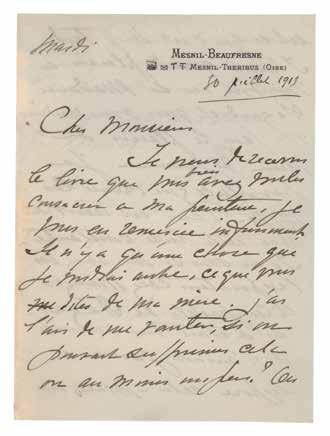 Mardi
MESNIL-BEAUFRESNE
T T MESNIL-THERIBUS (OISE)
30 juillet 1913
Cher Monsieur
Je viens de recevoir
le livre que vous avez bien voulu
consacrer a ma peinture, je
vous en remercie infiniment.
Il n'y a qu'une chose que
je voudrai autre, ce que vous
dites de ma mère. j'ai
l'air de me vanter, si on
pouvait supprimer cela
ou au moins un peu?